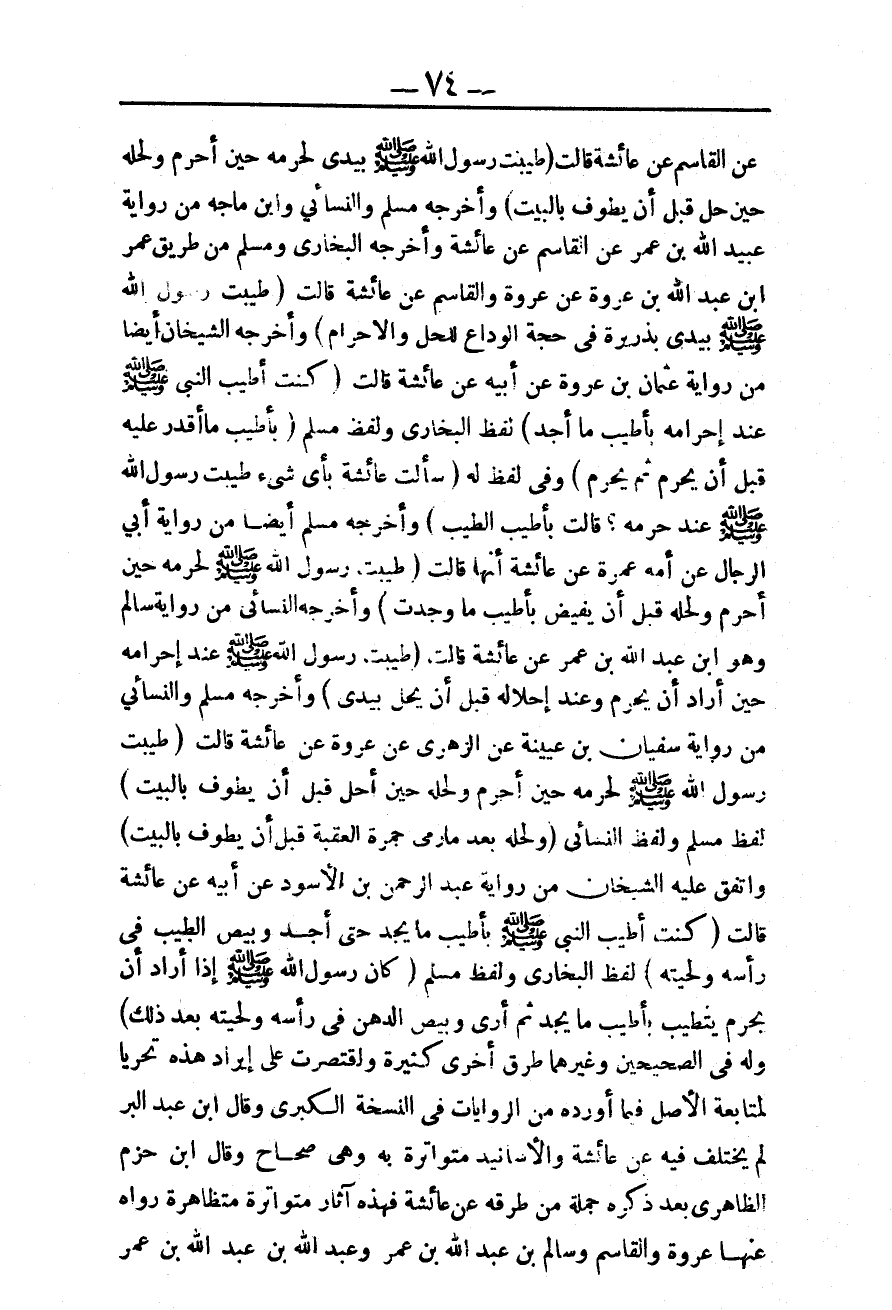 — ٧٤ —
عن القاسم عن عائشة قالت (طيبت رسول الله ﷺ بيدى لحرمه حين أحرم ولحله
حين حل قبل أن يطوف بالبيت) وأخرجه مسلم والنسائي وابن ماجه من رواية
عبيد الله بن عمر عن القاسم عن عائشة وأخرجه البخارى ومسلم من طريق عمر
ابن عبد الله بن عروة عن عروة والقاسم عن عائشة قالت ( طيبت رسول الله
ﷺ بيدى بذريرة فى حجة الوداع للحل والاحرام ) وأخرجه الشيخان أيضا
من رواية عثمان بن عروة عن أبيه عن عائشة قالت ( كنت أطيب النبي ﷺ
عند إحرامه بأطيب ما أجد ) لفظ البخارى ولفظ مسلم ( بأطيب ماأقدر عليه
قبل أن يحرم ثم يحرم ) وفى لفظ له ( سألت عائشة بأى شىء طيبت رسول الله
ﷺ عند حرمه ؟ قالت بأطيب الطيب ) وأخرجه مسلم أيضا من رواية أبي
الرجال عن أمه عمرة عن عائشة أنها قالت ( طيبت رسول الله ﷺ لحرمه حين
أحرم ولحله قبل أن يفيض بأطيب ما وجدت ) وأخرجه النسائى من رواية سالم
وهو ابن عبد الله بن عمر عن عائشة قالت (طيبت رسول الله ﷺ عند إحرامه
حين أراد أن يحرم وعند إحلاله قبل أن يحل بيدى ) وأخرجه مسلم والنسائي
من رواية سفيان بن عيينة عن الزهرى عن عروة عن عائشة قالت ( طيبت
رسول الله ﷺ لحرمه حين أحرم ولحله حين أحل قبل أن يطوف بالبيت )
لفظ مسلم ولفظ النسائى (ولحله بعد مارمى جمرة العقبة قبل أن يطوف بالبيت)
واتفق عليه الشيخان من رواية عبد الرحمن بن الأسود عن أبيه عن عائشة
قالت ( كنت أطيب النبي ﷺ بأطيب ما يجد حتى أجد وبيص الطيب فى
رأسه ولحيته ) لفظ البخارى ولفظ مسلم ( كان رسول الله ﷺ إذا أراد أن
يحرم يتطيب بأطيب ما يجد ثم أرى وبيص الدهن فى رأسه ولحيته بعد ذلك)
وله فى الصحيحين وغيرهما طرق أخرى كثيرة ولقتصرت على إيراد هذه تحريا
لمتابعة الأصل فيما أورده من الروايات فى النسخة الكبرى وقال ابن عبد البر
لم يختلف فيه عن عائشة والأسانيد متواترة به وهى صحاح وقال ابن حزم
الظاهرى بعد ذكره جملة من طرقه عن عائشة فهذه آثار متواترة متظاهرة رواه
عنها عروة والقاسم وسالم بن عبد الله بن عمر وعبد الله بن عبد الله بن عمر